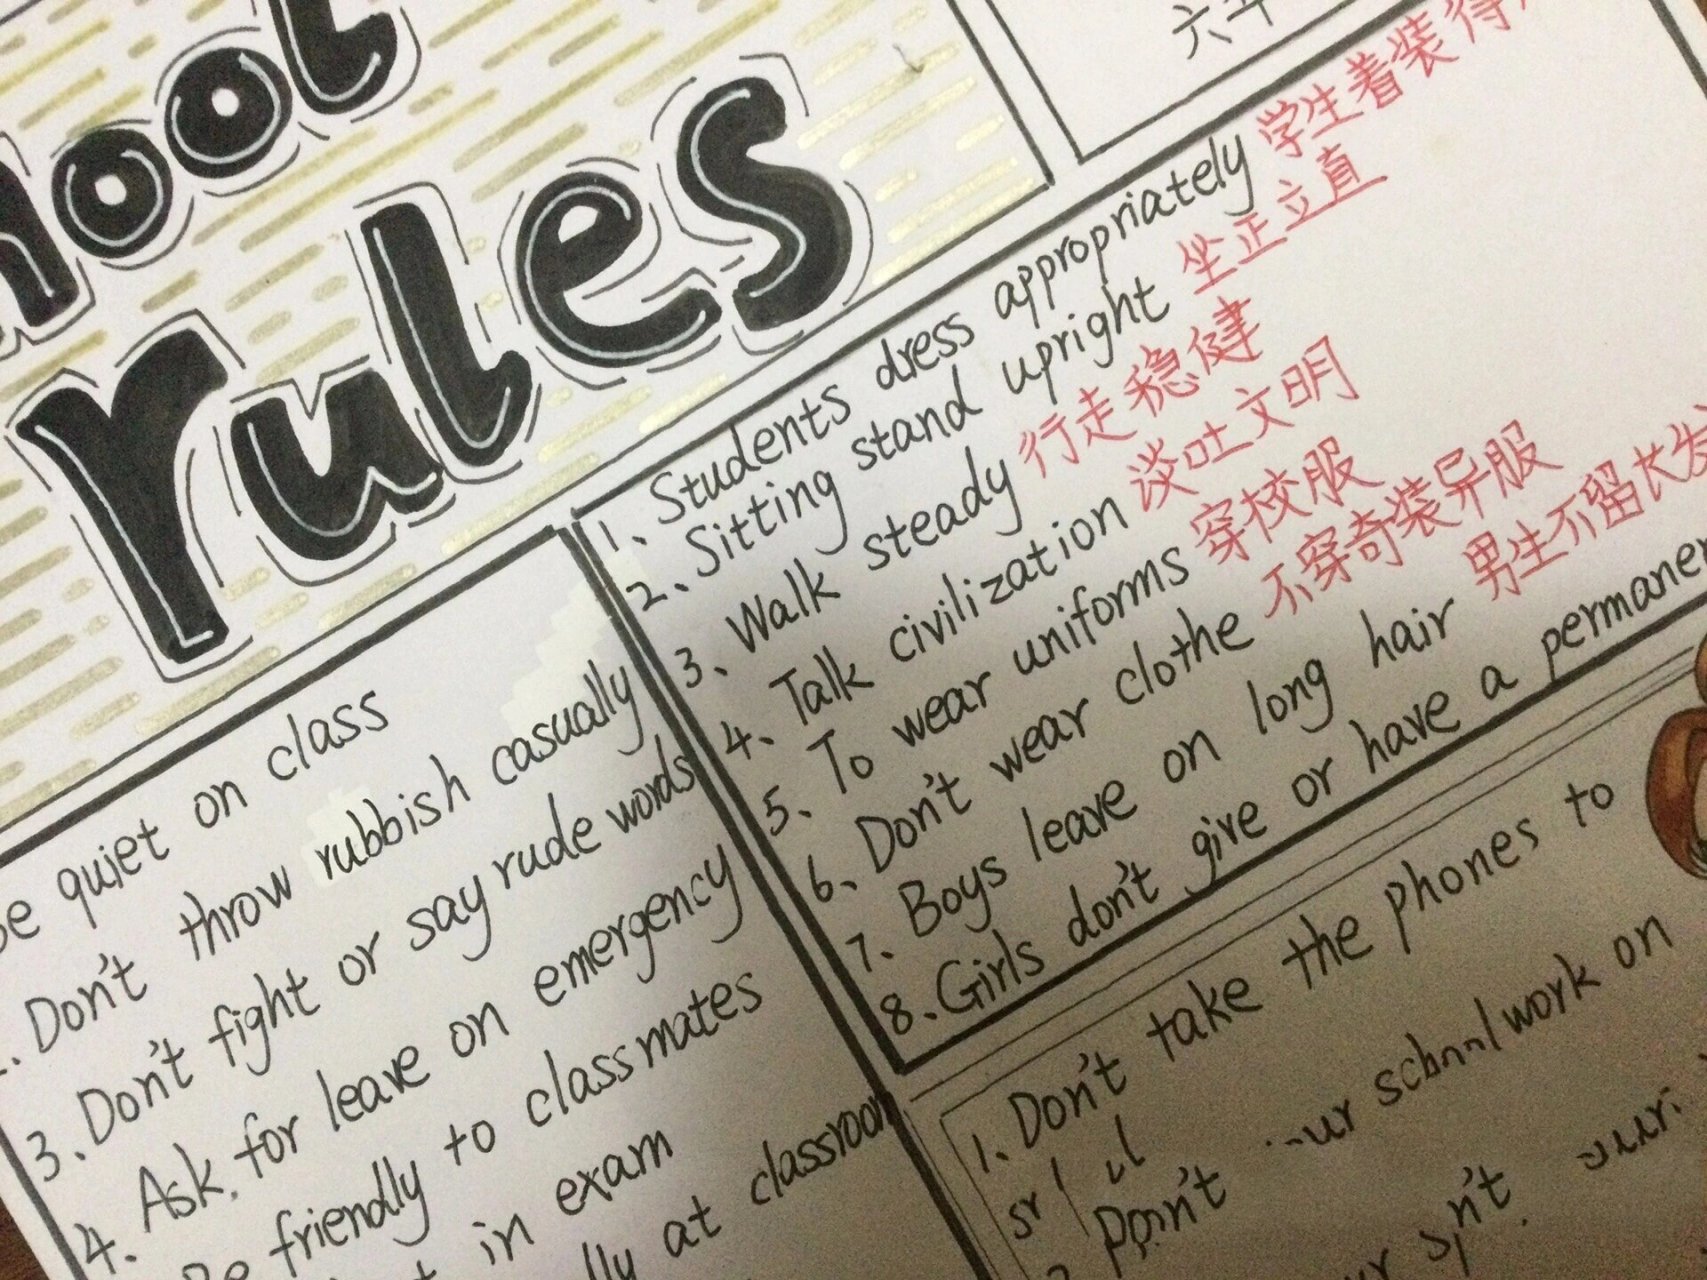 rules
六年
1、Students dress appropriately 学生着装得
2、Sitting stand upright 坐正立直
3、Walk steady 行走稳健
4、Talk civilization 谈吐文明
5、To wear uniforms 穿校服
6、Don't wear clothe 不穿奇装异服
7、Boys leave on long hair 男生不留长发
8、Girls don't give or have a
quiet on class
Don't throw rubbish casually
3、Don't fight or say rude words
4、Ask for leave on emergency
friendly to classmates
in exam
at classroom
1、Don't take the phones to
Don't schoolwork on